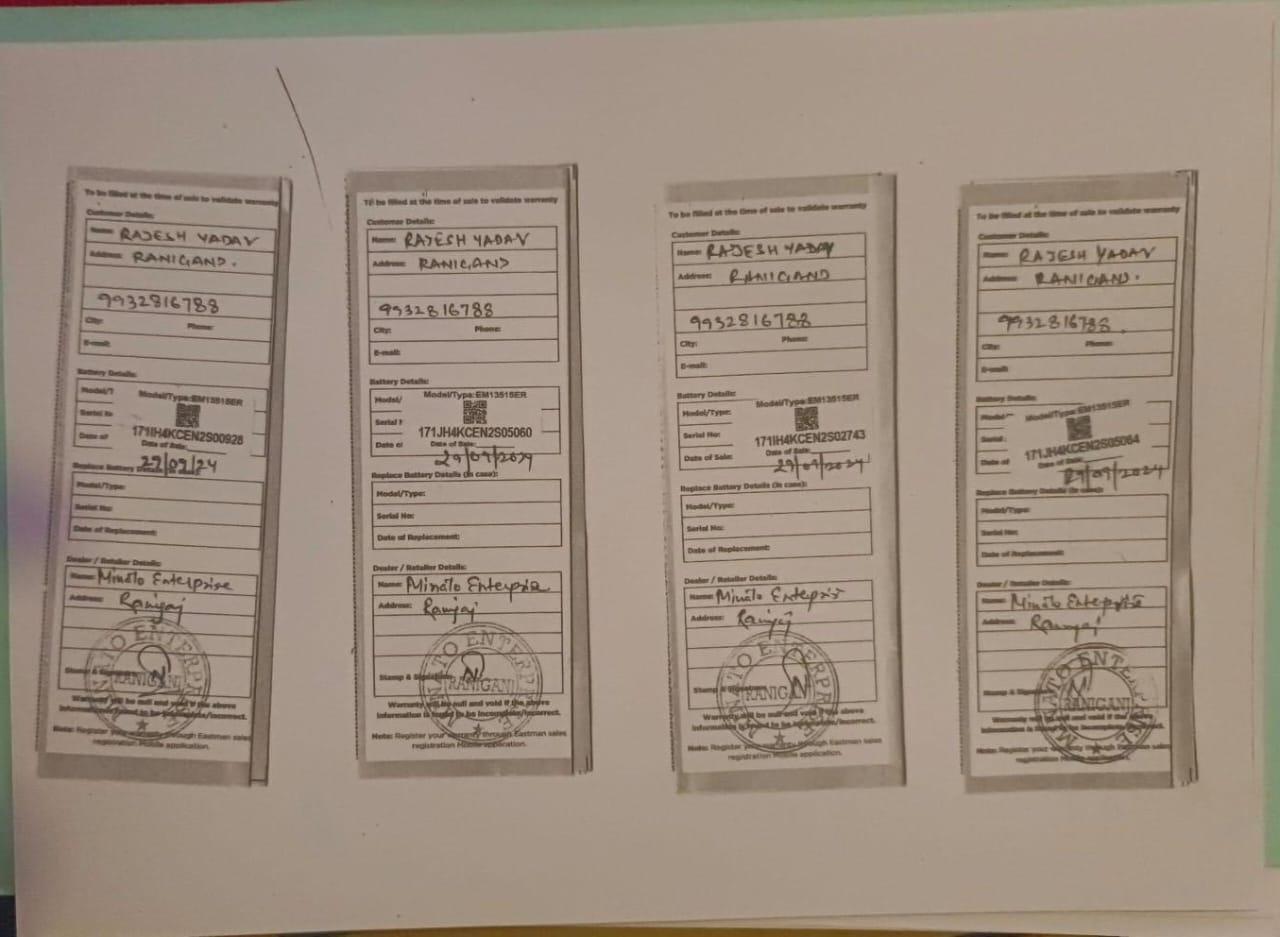 To be filled at the time of sale to validate warranty
Customer Details:
Name: RAJESH YADAV
Address: RANIGANJ.
9932816788
City: Phone:
E-mail:
Battery Details:
Model/T
Model/Type:EM13515ER
Serial No
171IH4KCEN2S00928
Date of
Date of Sale:
29/09/24
Replace Battery Details
Model/Type:
Serial No:
Date of Replacement:
Dealer / Retailer Details:
Name: Minato Enterprise
Address: Raniganj
Stamp &
MINATO ENTERPRISE
RANIGANJ
Warranty will be null and void if the above
information is found to be incomplete/incorrect.
Note: Register your warranty through Eastman sales
registration Mobile application.
To be filled at the time of sale to validate warranty
Customer Details:
Name: RAJESH YADAV
Address: RANIGANJ
9932816788
City: Phone:
E-mail:
Battery Details:
Model/
Model/Type:EM13515ER
Serial N
171JH4KCEN2S05060
Date of
Date of Sale:
29/09/2024
Replace Battery Details (in case):
Model/Type:
Serial No:
Date of Replacement:
Dealer / Retailer Details:
Name: Minato Enterprise
Address: Raniganj
Stamp & Signature
MINATO ENTERPRISE
RANIGANJ
Warranty will be null and void if the above
information is found to be incomplete/incorrect.
Note: Register your warranty through Eastman sales
registration Mobile application.
To be filled at the time of sale to validate warranty
Customer Details:
Name: RAJESH YADAV
Address: RANIGANJ
9932816788
City: Phone:
E-mail:
Battery Details:
Model/Type:
Model/Type:EM13515ER
Serial No:
171IH4KCEN2S02743
Date of Sale:
Date of Sale:
29/09/2024
Replace Battery Details (in case):
Model/Type:
Serial No:
Date of Replacement:
Dealer / Retailer Details:
Name: Minato Enterprise
Address: Raniganj
Stamp & Signature
MINATO ENTERPRISE
RANIGANJ
Warranty will be null and void if the above
information is found to be incomplete/incorrect.
Note: Register your warranty through Eastman sales
registration Mobile application.
To be filled at the time of sale to validate warranty
Customer Details:
Name: RAJESH YADAV
Address: RANIGANJ.
9932816788
City: Phone:
E-mail:
Battery Details:
Model/
Model/Type:EM13515ER
Serial
171JH4KCEN2S05064
Date of
Date of Sale:
29/09/2024
Replace Battery Details (in case):
Model/Type:
Serial No:
Date of Replacement:
Dealer / Retailer Details:
Name: Minato Enterprise
Address: Raniganj
Stamp &
MINATO ENTERPRISE
RANIGANJ
Warranty will be null and void if the above
information is found to be incomplete/incorrect.
Note: Register your warranty through Eastman sales
registration Mobile application.